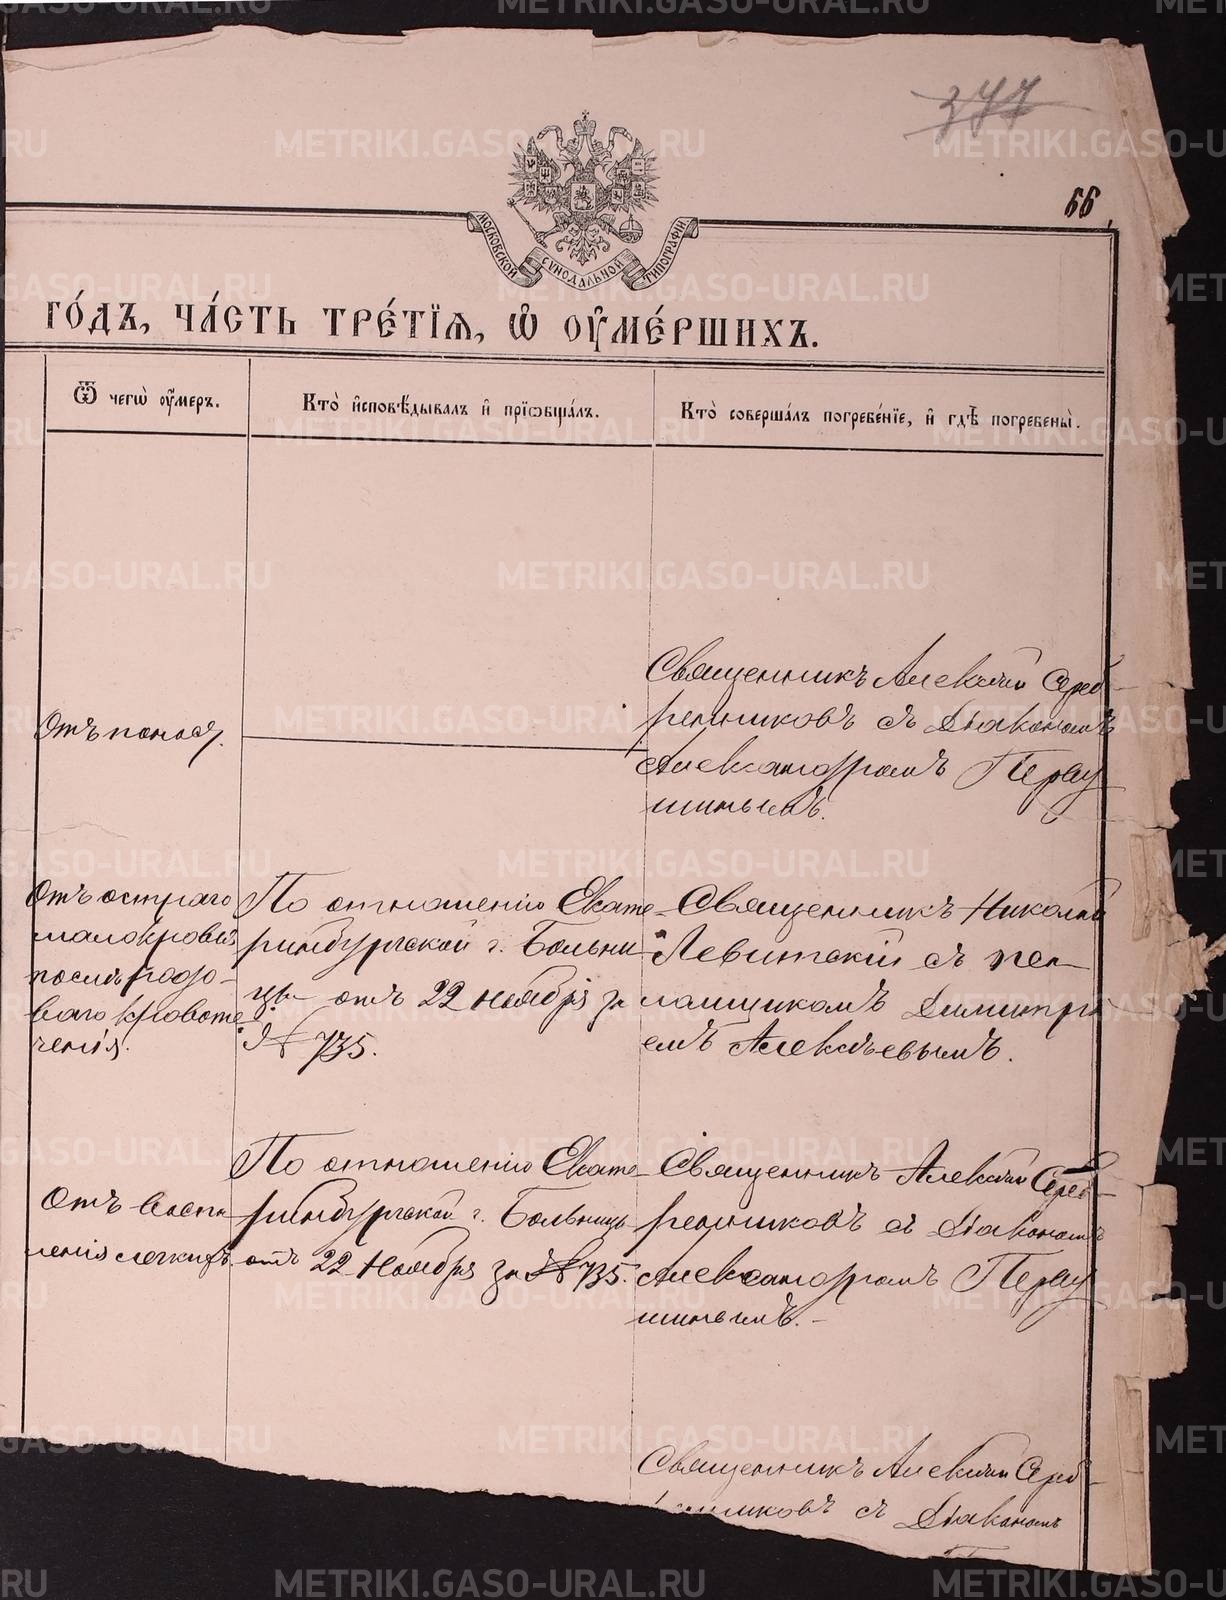 377
66
МОСКОВСКОЙ СѴНОДАЛЬНОЙ ТИПОГРАФІИ
го́дъ, ча́сть тре́тїѧ, ѡ҆ ᲂу҆ме́ршихъ.
Ѿ чегѡ̀ ᲂу҆́меръ.
Кто̀ и҆сповѣ́дывалъ и҆ прїѡбща́лъ.
Кто̀ соверша́лъ погребе́нїе, и҆ гдѣ̀ погребены̀.
Отъ поноса.
Священникъ Алексій Сереб-
ренниковъ съ Діакономъ
Александромъ Перву
шинымъ.
Отъ остраго
малокровія
послѣ родо-
ваго кровоте
ченія.
По отношенію Екате-
ринбургской г. Больни
цы отъ 22 Ноября за
№ 735.
Священникъ Николай
Левитскій съ пса
ломщикомъ Димитрі
емъ Алексѣевымъ.
Отъ воспа
ленія легкихъ.
По отношенію Екате-
ринбургской г. Больницы
отъ 22 Ноября за № 735.
Священникъ Алексій Сереб-
ренниковъ съ Діакономъ
Александромъ Перву
шинымъ.-
Священникъ Алексій Сереб-
ренниковъ съ Діакономъ
METRIKI.GASO-URAL.RU